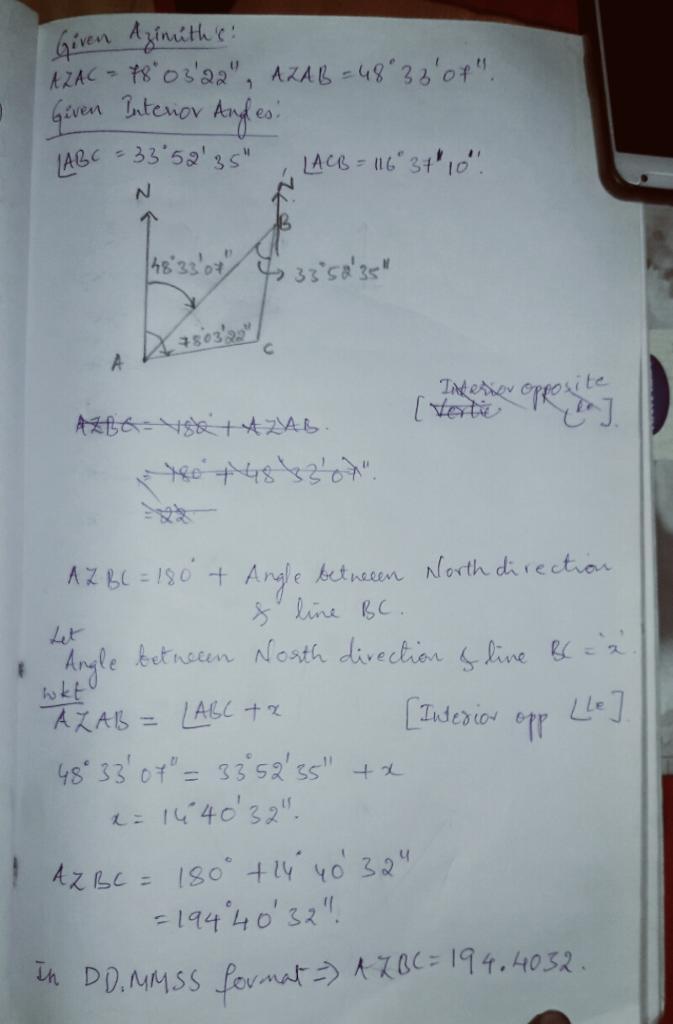 Given Azimith's:
AZAC = 78° 03' 22", AZAB = 48° 33' 07".
Given Interior Angles:
∠ABC = 33° 52' 35" ∠ACB = 116° 37" 10".
N
N
B
48° 33' 07"
33° 52' 35"
78 03' 22"
A
C
AZBC = 180 + AZAB.
[Vertic Interior opposite ∠le].
= 180° + 48° 33' 07".
= 22
AZBC = 180° + Angle between North direction
& line BC.
Let
Angle between North direction & line BC = 'x'.
wkt
AZAB = ∠ABC + x [Interior opp ∠le].
48° 33' 07" = 33° 52' 35" + x
x = 14° 40' 32".
AZBC = 180° + 14° 40' 32"
= 194° 40' 32".
In DD.MMSS format ⇒ AZBC = 194.4032.